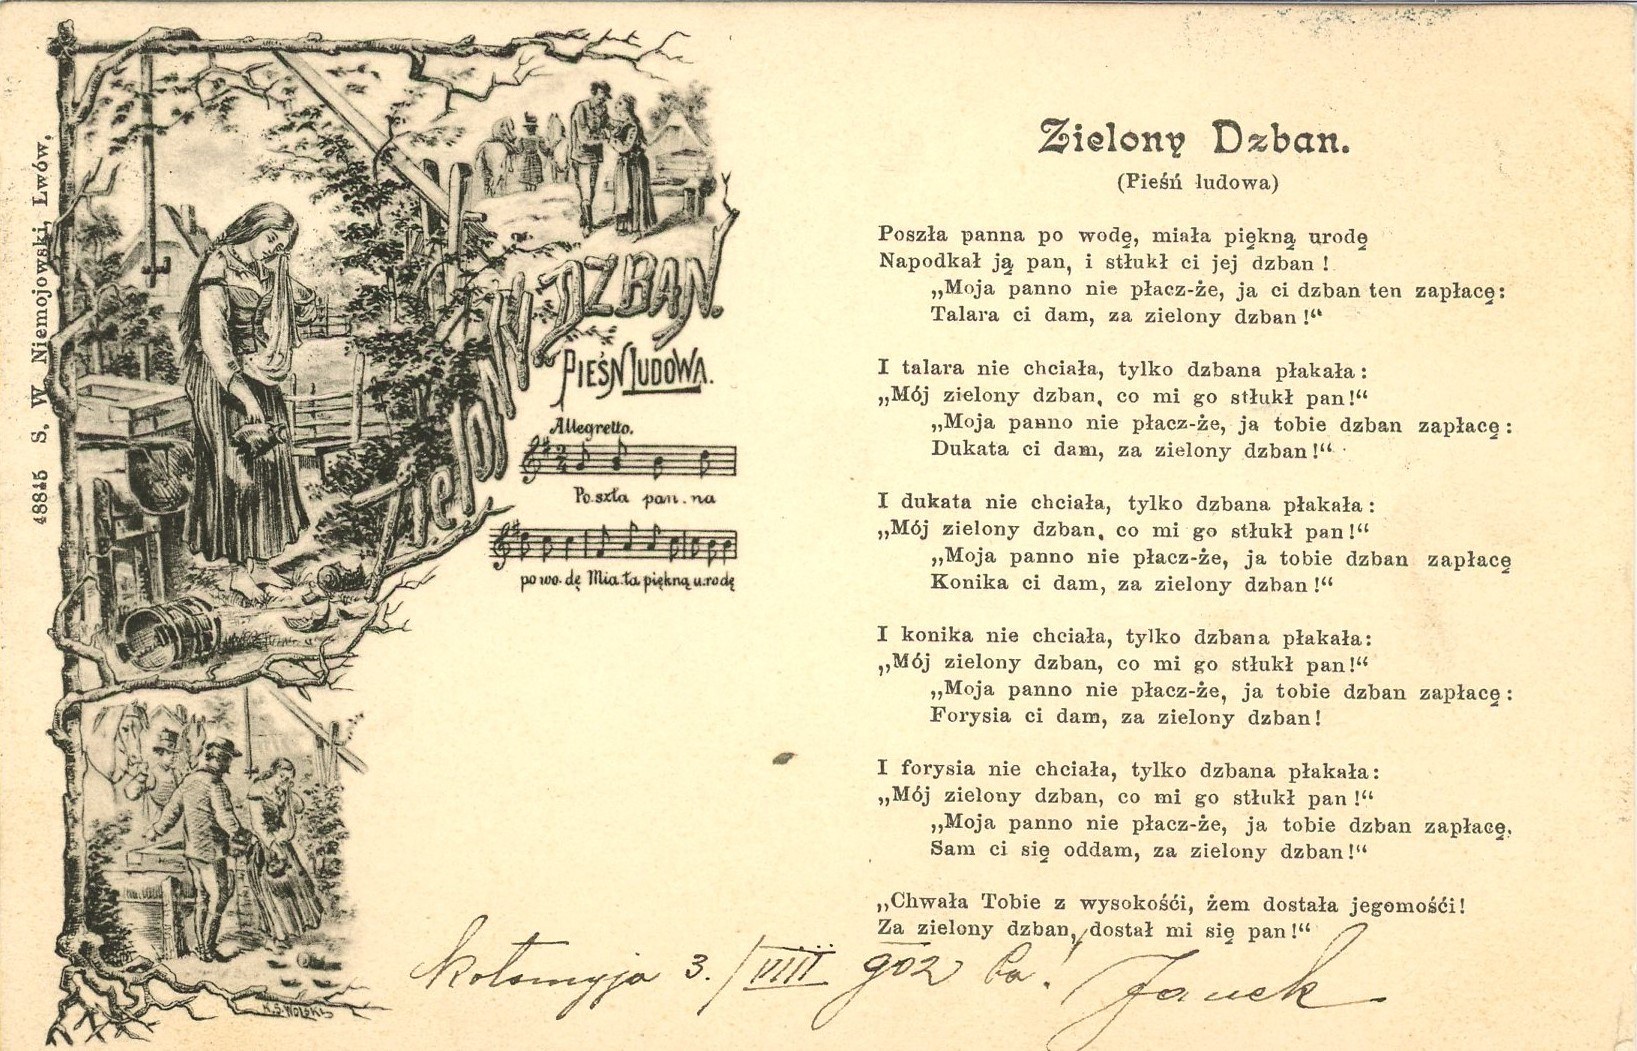 48815 S. W. Niemojowski, Lwów.
ZIELONY DZBAN.
PIEŚŃ LUDOWA.
Allegretto.
Po-szła pan-na
po wo-dę Mia-ła piękną u-rodę
K.S. WOLSKI
Zielony Dzban.
(Pieśń ludowa)
Poszła panna po wodę, miała piękną urodę
Napodkał ją pan, i stłukł ci jej dzban !
„Moja panno nie płacz-że, ja ci dzban ten zapłacę:
Talara ci dam, za zielony dzban !“
I talara nie chciała, tylko dzbana płakała:
„Mój zielony dzban, co mi go stłukł pan!“
„Moja panno nie płacz-że, ja tobie dzban zapłacę:
Dukata ci dam, za zielony dzban!“
I dukata nie chciała, tylko dzbana płakała:
„Mój zielony dzban, co mi go stłukł pan!“
„Moja panno nie płacz-że, ja tobie dzban zapłacę
Konika ci dam, za zielony dzban!“
I konika nie chciała, tylko dzbana płakała:
„Mój zielony dzban, co mi go stłukł pan!“
„Moja panno nie płacz-że, ja tobie dzban zapłacę:
Forysia ci dam, za zielony dzban!
I forysia nie chciała, tylko dzbana płakała:
„Mój zielony dzban, co mi go stłukł pan !“
„Moja panno nie płacz-że, ja tobie dzban zapłacę.
Sam ci się oddam, za zielony dzban!“
„Chwała Tobie z wysokośći, żem dostała jegomośći!
Za zielony dzban, dostał mi się pan!“
Kołomyja 3./VIII 902 Pa! Janek